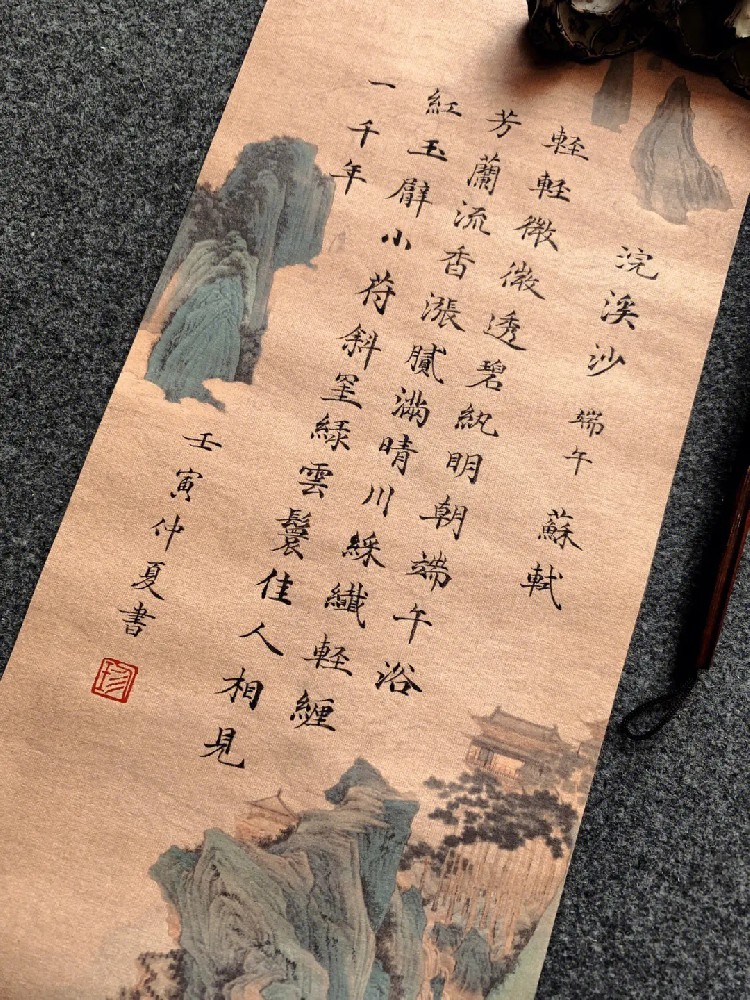 浣溪沙 端午 蘇軾
軽軽微微透碧紈明朝端午浴
芳蘭流香漲膩滿晴川綵纖軽緾
紅玉臂小苻斜罣綠雲鬟佳人相見
一千年
壬寅仲夏書
珍